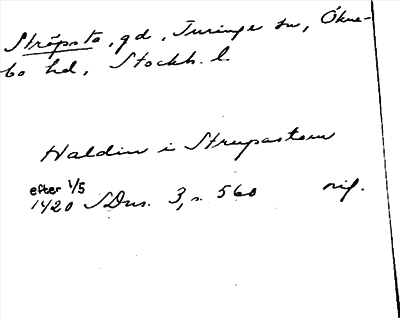 Ströpsta, gd, Turinge sn, Ökne-
bo hd, Stockh. l.
Haldin i Strupastum
efter 1/5
1420 SDns. 3, s. 560 orig.